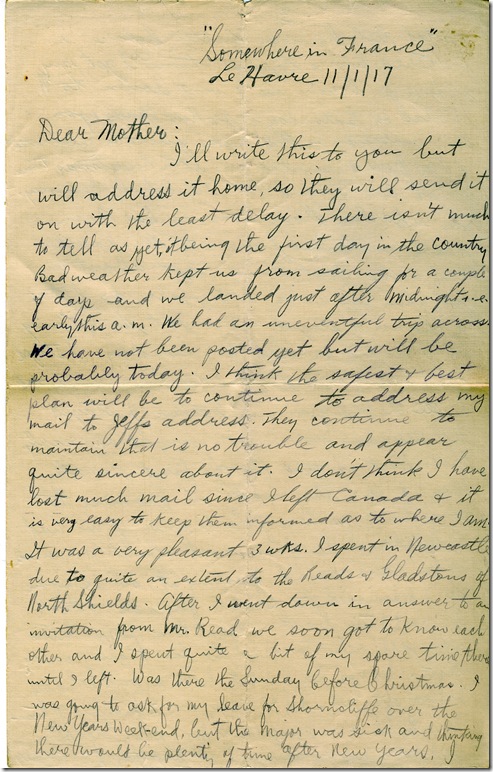 "Somewhere in France"
Le Havre 11/1/17
Dear Mother:
I'll write this to you but
will address it home, so they will send it
on with the least delay. There isn't much
to tell as yet, it being the first day in the country
Bad weather kept us from sailing for a couple
of days and we landed just after midnight i.e.
early this a.m. We had an uneventful trip across.
We have not been posted yet but will be
probably today. I think the safest & best
plan will be to continue to address my
mail to Jeffs address. They continue to
maintain that is no trouble and appear
quite sincere about it. I don't think I have
lost much mail since I left Canada & it
is very easy to keep them informed as to where I am.
It was a very pleasant 3 wks. I spent in Newcastle
due to quite an extent to the Reads & Gladstons of
North Shields. After I went down in answer to an
invitation from Mr. Read, we soon got to know each
other and I spent quite a bit of my spare time there
until I left. Was there the Sunday before Christmas. I
was going to ask for my leave for Shorncliffe over the
New Years Week-end, but the Major was sick and thinking
there would be plenty of time after New Years, I